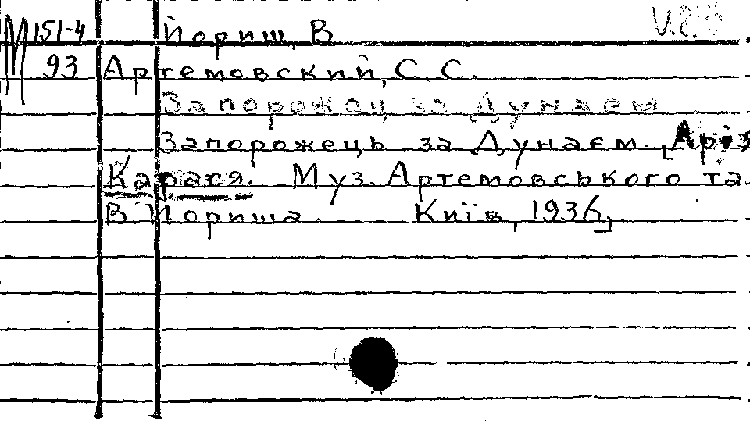 М 151-4 Йориш, В.
93 Артемовский, С. С.
Запорожец за Дунаем
Запорожець за Дунаєм. [Арія
Карася. Муз. Артемовського та
В. Йориша Київ, 1936]